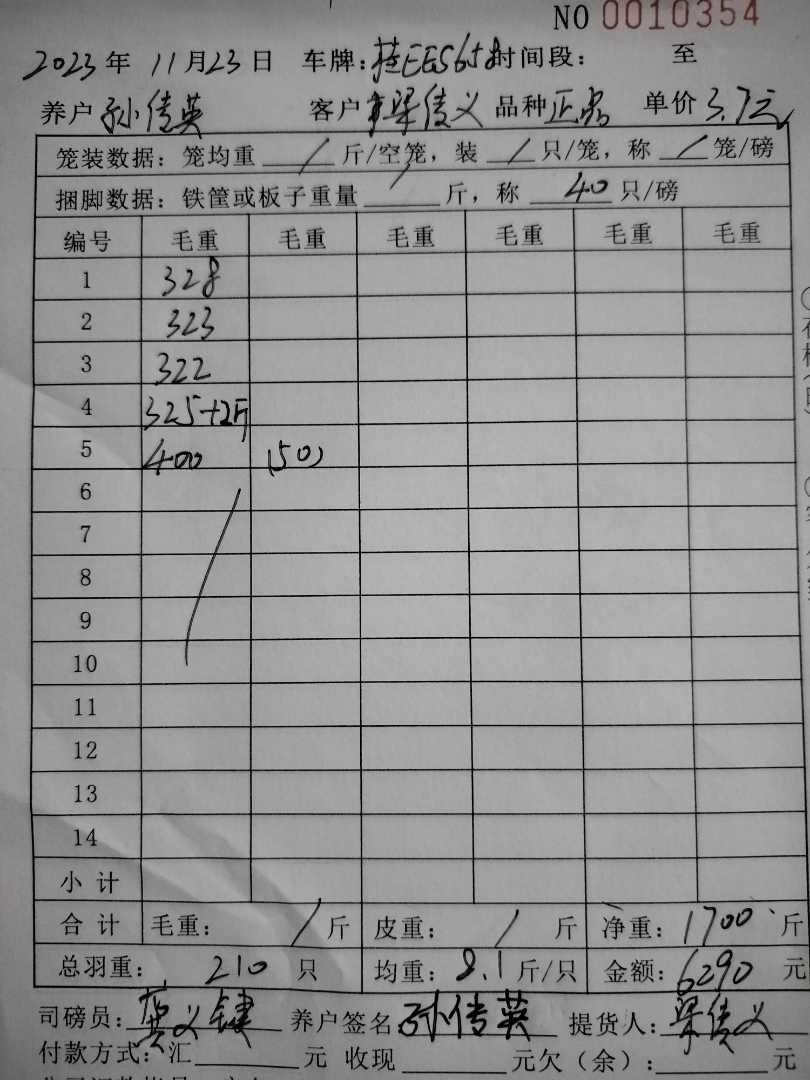 NO 0010354
2023年 11月23日 车牌:桂EE5658 时间段: 至
养户 孙传英 客户 梁传义 品种 正品 单价 3.7元
笼装数据: 笼均重 / 斤/空笼, 装 / 只/笼, 称 / 笼/磅
捆脚数据: 铁筐或板子重量 / 斤, 称 40 只/磅
编号 毛重 毛重 毛重 毛重 毛重 毛重
1 328
2 323
3 322
4 325+2斤
5 400 (50)
6
7
8
9
10
11
12
13
14
小计
合计 毛重: / 斤 皮重: / 斤 净重: 1700 斤
总羽重: 210 只 均重: 8.1 斤/只 金额: 6290 元
司磅员: 义 养户签名 孙传英 提货人: 梁传义
付款方式: 汇 元 收现 元欠(余): 元